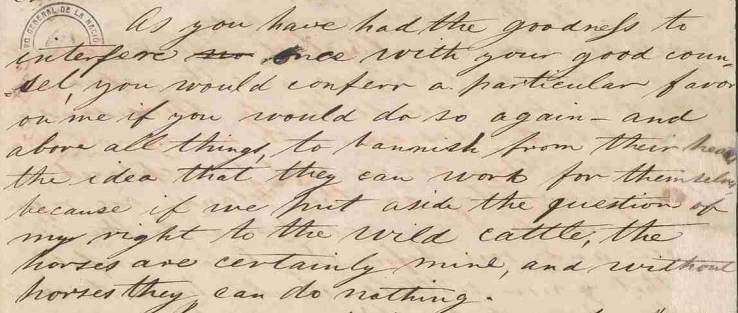 As you have had the goodness to
interfere no once with your good coun-
sel, you would conferr a particular favor
on me if you would do so again - and
above all things, to bannish from their heads
the idea that they can work for themselves
because if we put aside the question of
my right to the wild cattle, the
horses are certainly mine, and without
horses they can do nothing.